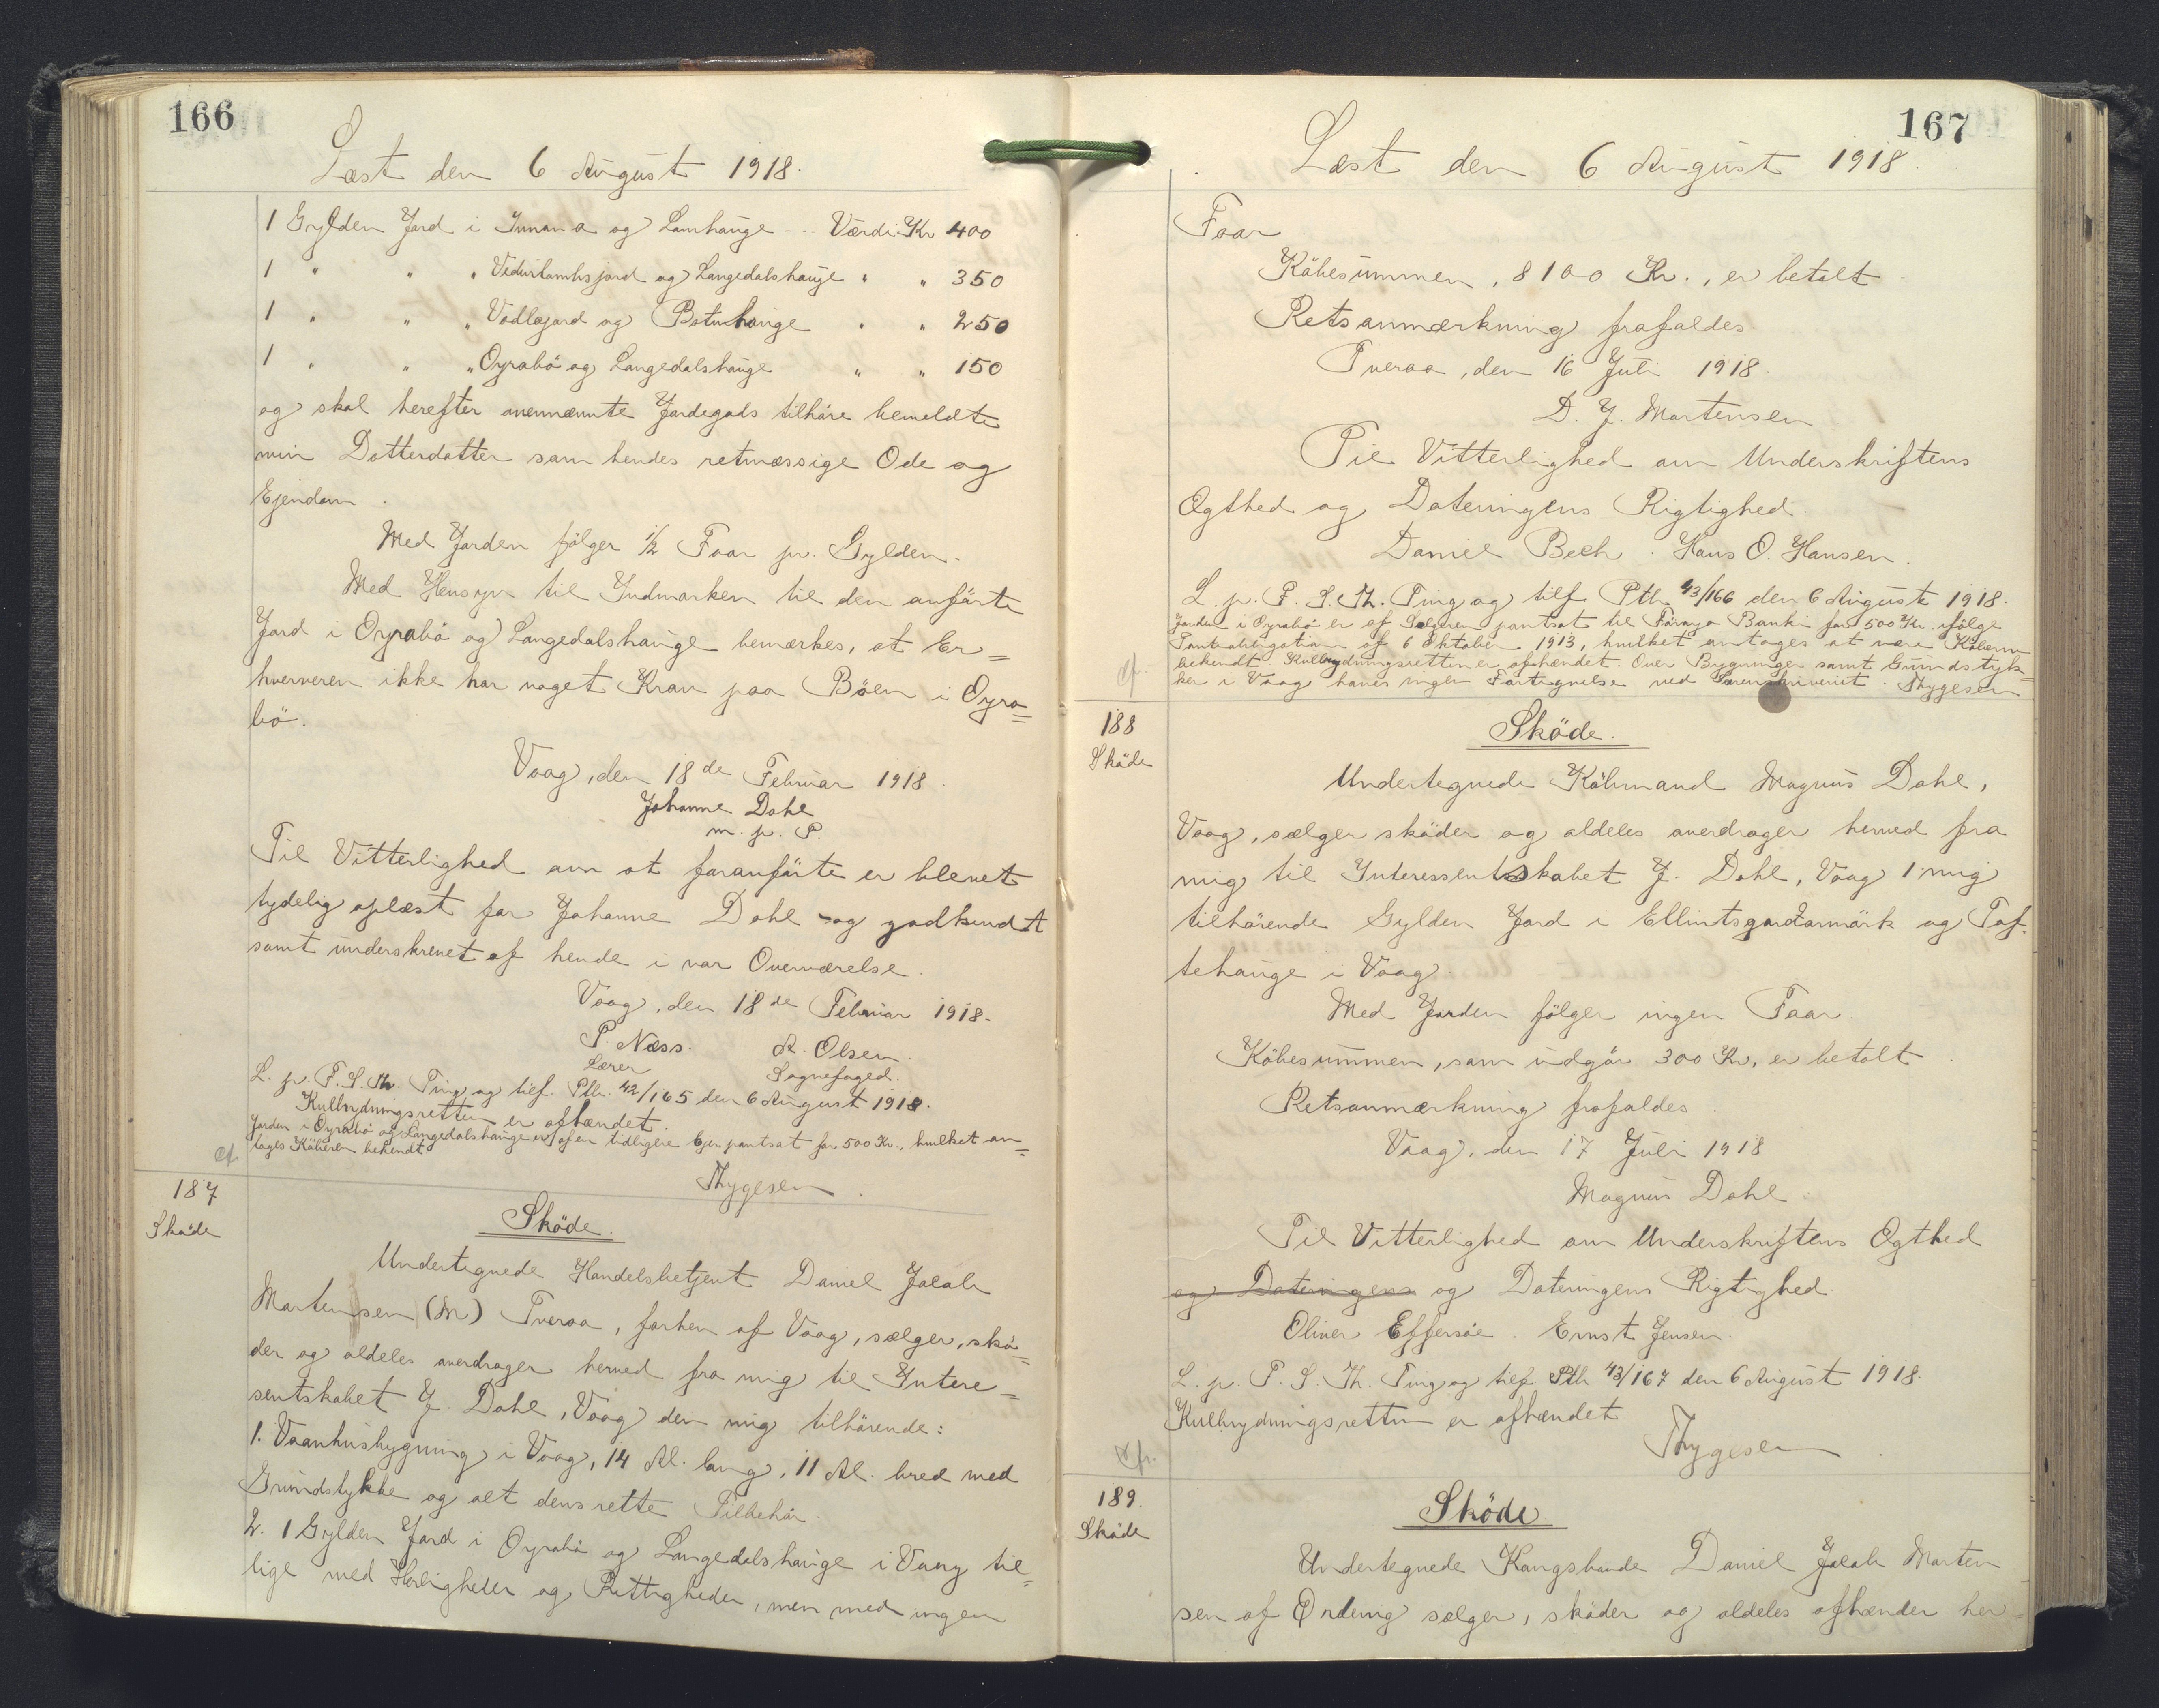 166
Læst den 6 August 1918.
1 Gylden Jord i Innan a og Lamhauge - .. Værdi Kr 400
1 " " " Vidurlambsjord og Langedalshauge " " 350
1 " " " Vodlagard og Botnhauge " " 250
1 " " " Oyrabö og Langedalshauge " " 150
og skal herefter ovennævnte Jordegods tilhöre bemeldte
min Datterdatter som hendes retmæssige Ode og
Ejendom.
Med Jorden fölger 1/2 Faar pr. Gylden.
Med Hensyn til Indmarken til den anförte
Jord i Oyrabö og Langedalshauge bemærkes, at Er=
hververen ikke har noget Krav paa Böen i Oyra=
bö.
Vaag, den 18de Februar 1918.
Johanne Dahl
m. p. P.
Til Vitterlighed om at foranförte er blevet
tydelig oplæst for Johanne Dahl og godkendt
samt underskrevet af hende i vor Overværelse.
Vaag, den 18de Februar 1918.
P. Næss. A. Olsen.
Lærer Sognefoged.
L. p. F. S. Th. Ting og tilf. Ptb. 42/165 den 6 August 1918.
Kulbrydningsretten er afhændet.
Jorden i Oyrabö og Langedalshauge er af en tidligere Ejer pantsat for 500 Kr., hvilket an=
tages Köberen bekendt
cf.
Thygesen.
187
Sköde
Sköde.
Undertegnede Handelsbetjent Daniel Jacob
Martensen (M) Tveraa, forhen af Vaag, sælger, skö=
der og aldeles overdrager herved fra mig til Intere=
sentskabet J. Dahl, Vaag den mig tilhörende:
1. Vaanhusbygning i Vaag, 14 Al. lang, 11 Al. bred med
Grundstykke og alt dens rette Tilbehör.
2. 1 Gylden Jord i Oyrabö og Langedalshauge i Vaag til=
lige med Herligheder og Rettigheder, men med ingen
167
Læst den 6 August 1918.
Faar
Köbesummen, 8100 Kr., er betalt.
Retsanmærkning frafaldes.
Tveraa, den 16 Juli 1918.
D. J. Martensen
Til Vitterlighed om Underskriftens
Ægthed og Dateringens Rigtighed.
Daniel Bech. Hans O. Hansen.
L. p. F. S. Th. Ting og tilf. Ptb 43/166 den 6 August 1918.
Jorden i Oyrabö er af Sælgeren pantsat til Föroya Banki for 500 Kr. ifölge
Pantobligation af 6 Oktober 1913, hvilket antages at være Köberen
bekendt. Kulbrydningsretten er afhændet. Over Bygninger samt Grundstyk=
ker i Vaag haves ingen Fortegnelse ved Sorenskriveriet. Thygesen
cf.
188
Sköde
Sköde.
Undertegnede Köbmand Magnus Dahl,
Vaag, sælger sköder og aldeles overdrager herved fra
mig til Interessentskabet J. Dahl, Vaag 1 mig
tilhörende Gylden Jord i Ellintsgardarmörk og Tof=
tehauge i Vaag.
Med Jorden fölger ingen Faar.
Köbesummen, som udgör 300 Kr, er betalt.
Retsanmærkning frafaldes.
Vaag, den 17 Juli 1918
Magnus Dahl.
Til Vitterlighed om Underskriftens Ægthed
og Dateringens og Dateringens Rigtighed.
Oliver Effersöe. Ernst Jensen.
L. p. F. S. Th. Ting og tilf Ptb 43/167 den 6 August 1918.
Kulbrydningsretten er afhændet
Thygesen.
cfr.
189.
Sköde
Sköde.
Undertegnede Kongsbonde Daniel Jacob Marten
sen af Ordevig sælger, sköder og aldeles afhænder her=